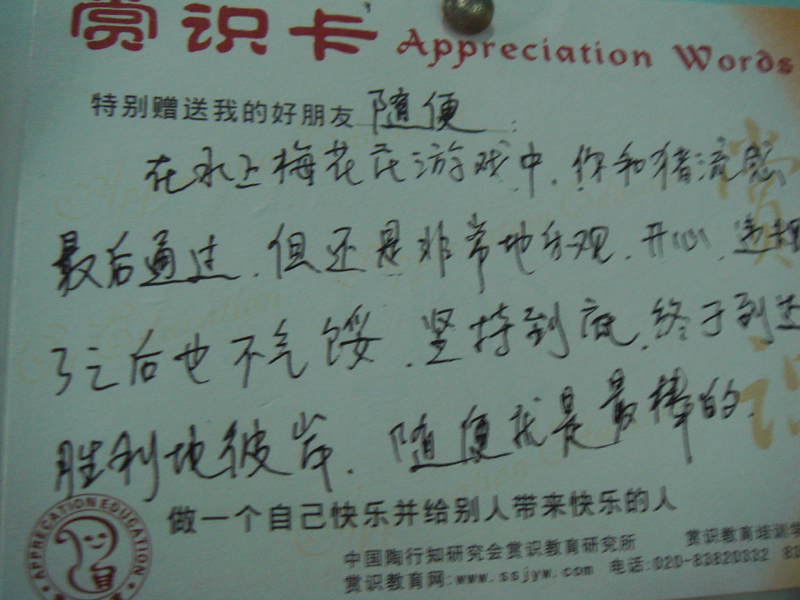 赏识卡 Appreciation Words
特别赠送我的好朋友 随便 :
在水上梅花庄游戏中,你和猪流感
最后通过,但还是非常地乐观、开心、
了之后也不气馁,坚持到底,终于到达
胜利地彼岸,随便我是最棒的.
做一个自己快乐并给别人带来快乐的人
中国陶行知研究会赏识教育研究所 赏识教育培训学
赏识教育网:www.ssjyw.com 电话:020-83820332 83
APPRECATION EDUCATION